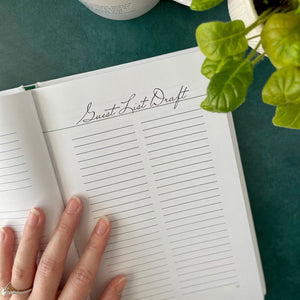 Guest List Draft